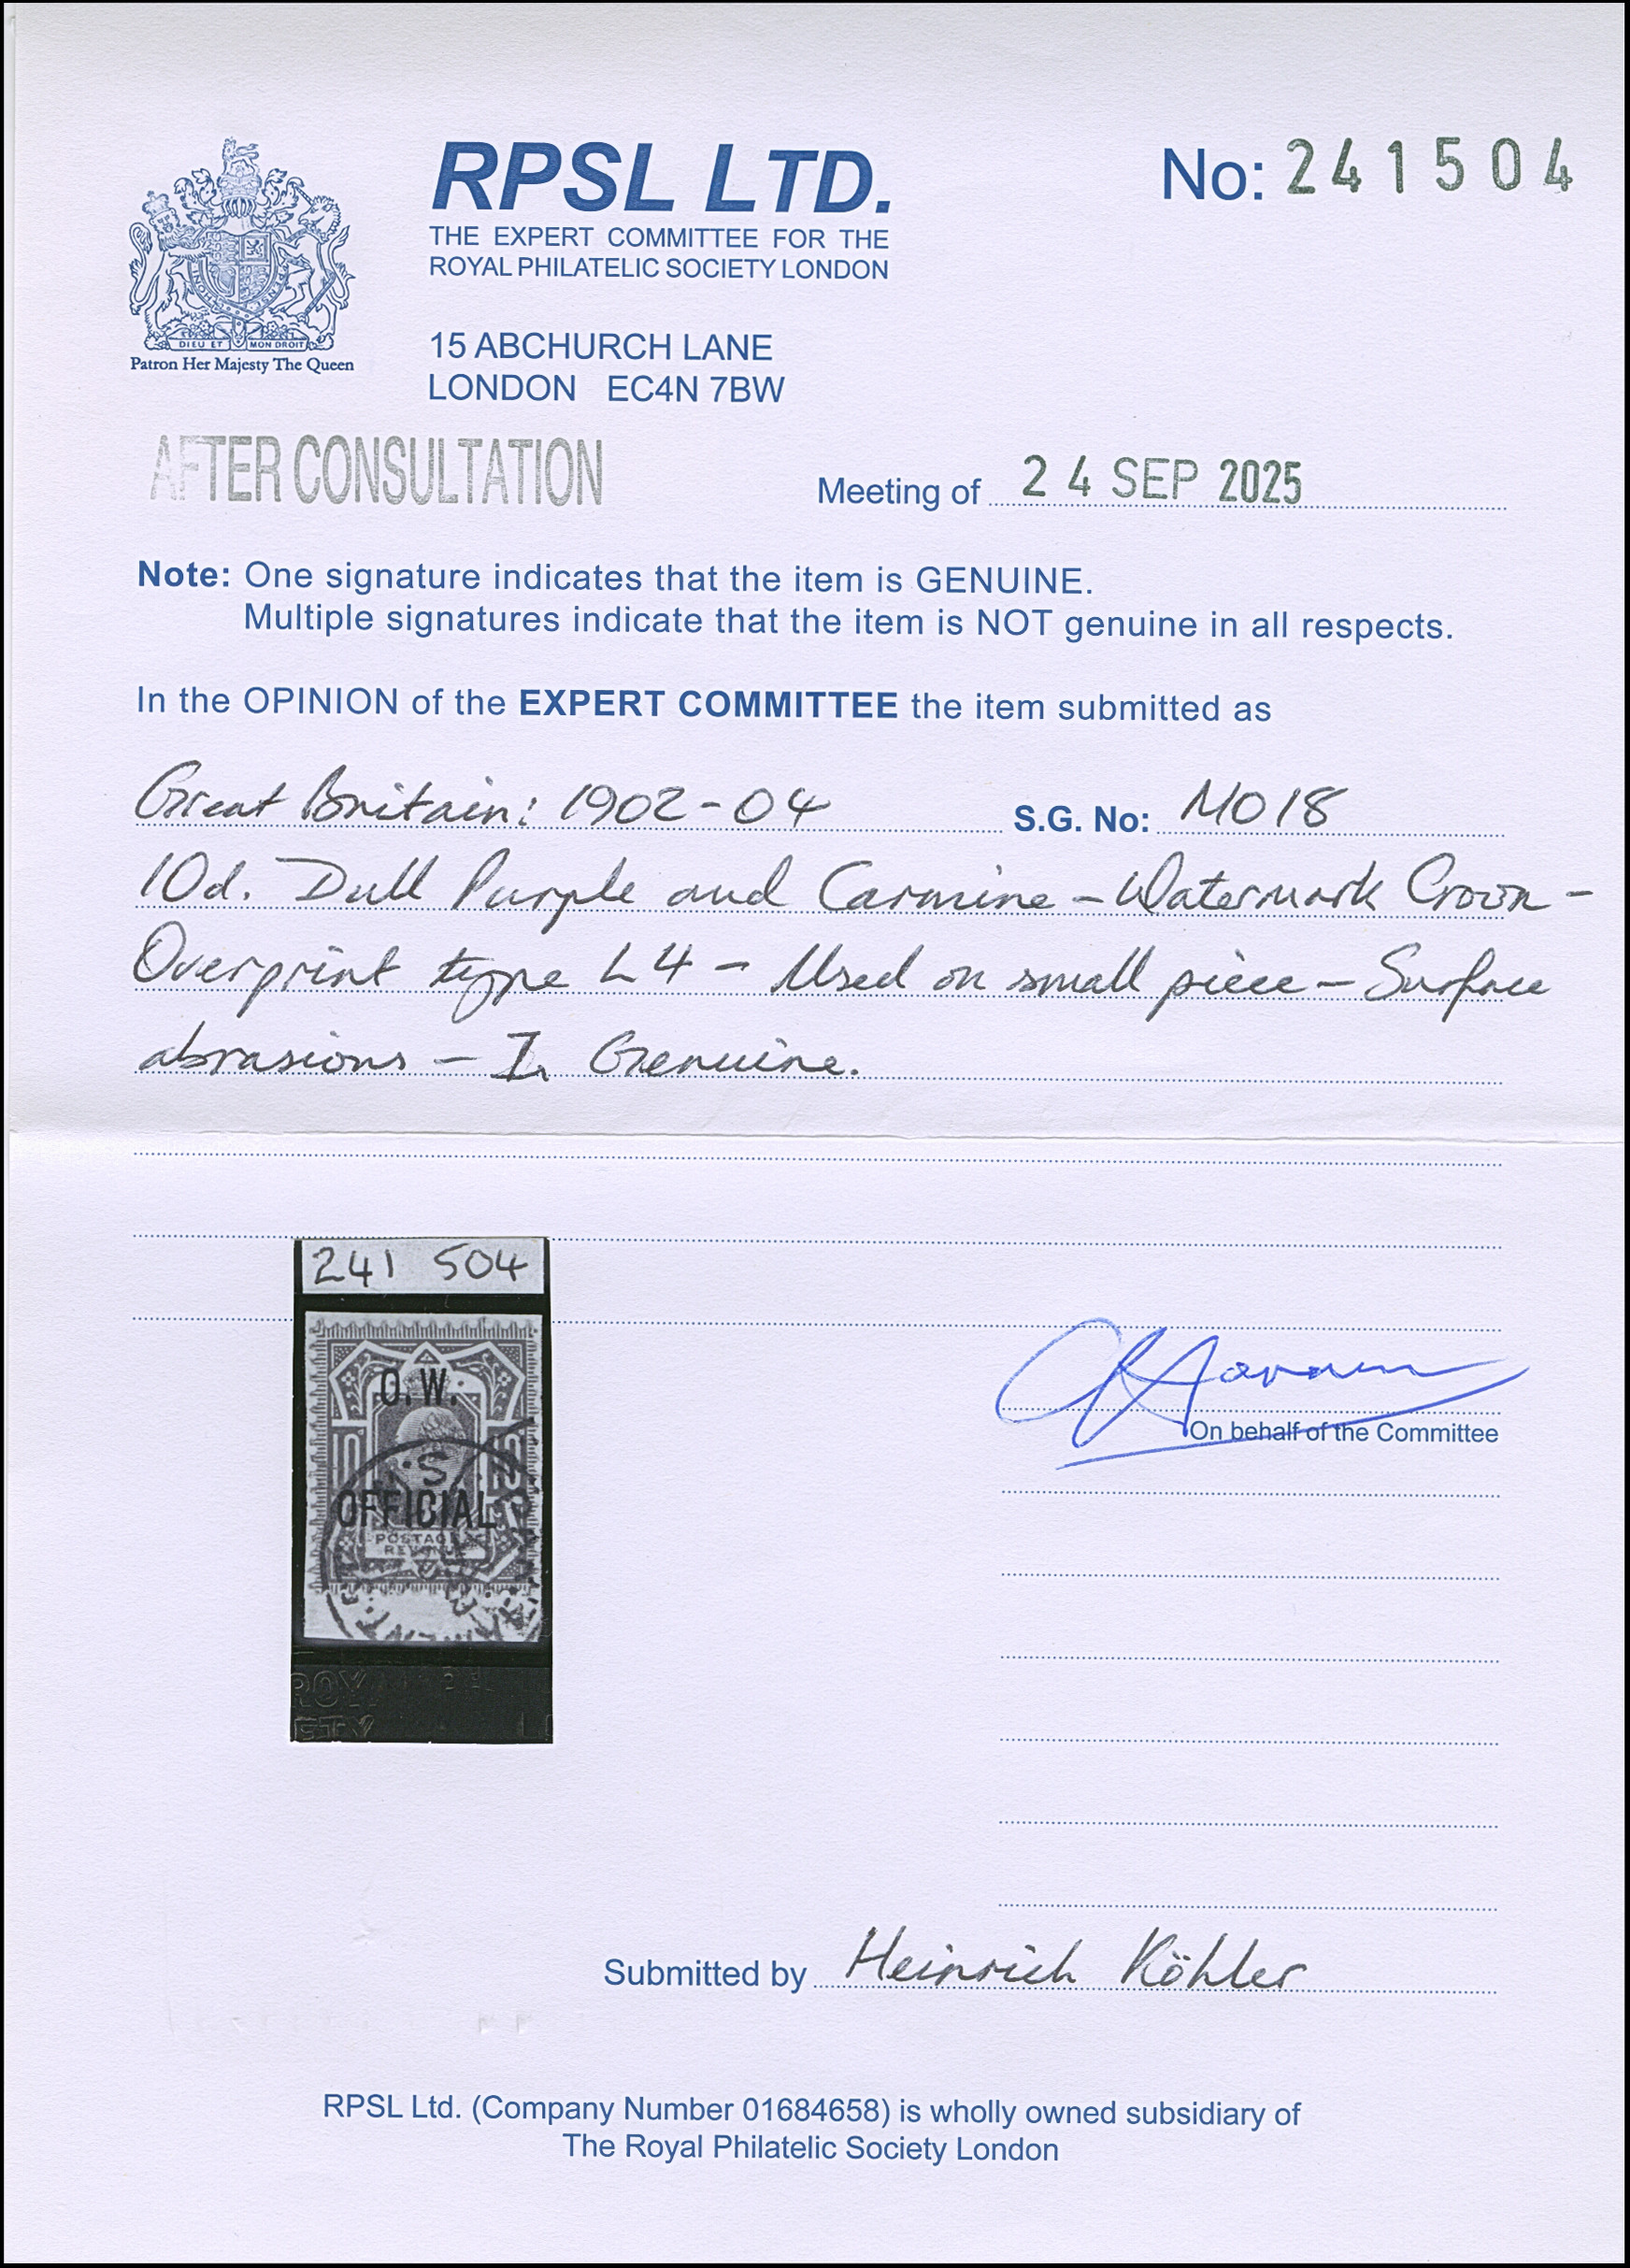 RPSL LTD.
No: 241504
THE EXPERT COMMITTEE FOR THE
ROYAL PHILATELIC SOCIETY LONDON
DIEU ET MON DROIT
Patron Her Majesty The Queen
15 ABCHURCH LANE
LONDON EC4N 7BW
AFTER CONSULTATION
Meeting of 24 SEP 2025
Note: One signature indicates that the item is GENUINE.
Multiple signatures indicate that the item is NOT genuine in all respects.
In the OPINION of the EXPERT COMMITTEE the item submitted as
Great Britain: 1902-04 S.G. No: MO18
10d. Dull Purple and Carmine - Watermark Crown -
Overprint type L4 - Used on small piece - Surface
abrasions - Is Genuine.
241 504
O.W.
10 10
S
OFFICIAL
POSTAGE
REVENUE
On behalf of the Committee
Submitted by Heinrich Köhler
RPSL Ltd. (Company Number 01684658) is wholly owned subsidiary of
The Royal Philatelic Society London